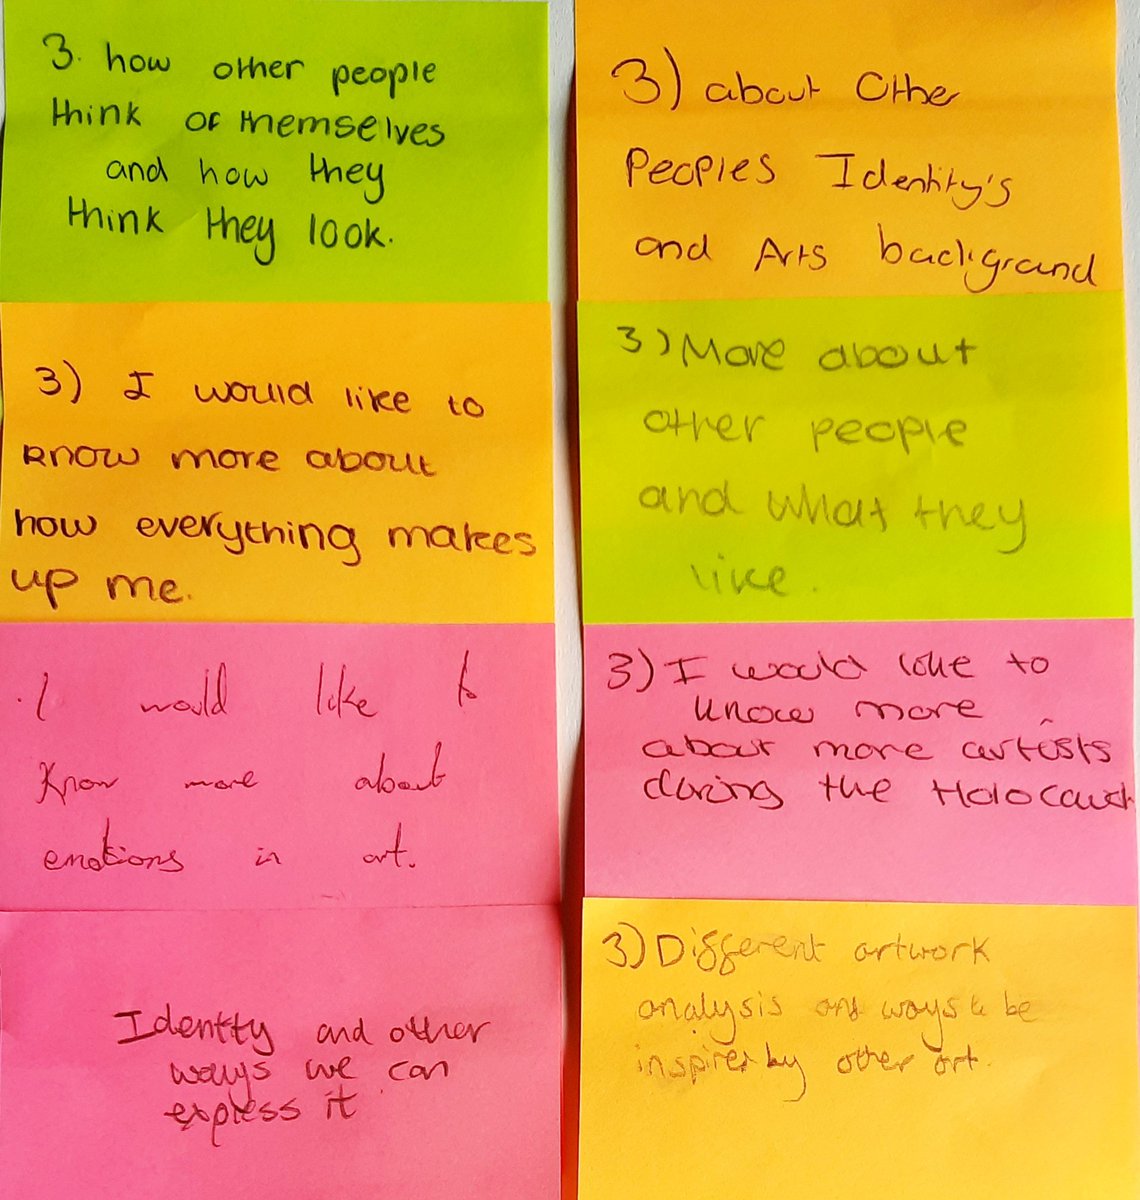 3. how other people
think of themselves
and how they
think they look.
3) I would like to
know more about
how everything makes
up me.
I would like to
know more about
emotions in art.
Identity and other
ways we can
express it
3) about Other
Peoples Identity's
and Arts background
3) More about
other people
and what they
like.
3) I would like to
know more
about more artists
during the Holocaust
3) Different artwork
analysis and ways to be
inspired by other art.